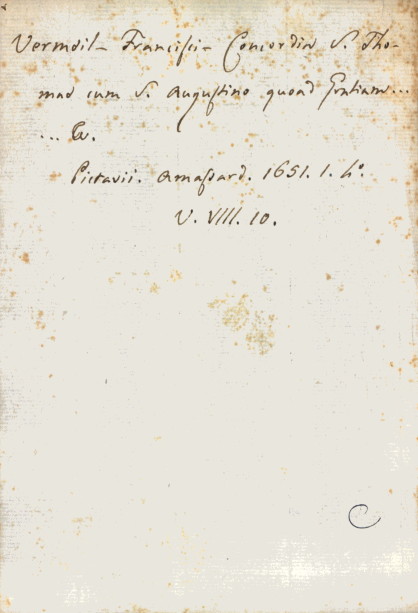 Vermeil- Francisci- Concordia S. Tho-
mae cum S. Augustino quoad Gratiam...
... &c.
Pictavii. Amassard. 1651. 1. 4°.
V. VIII. 10.
C